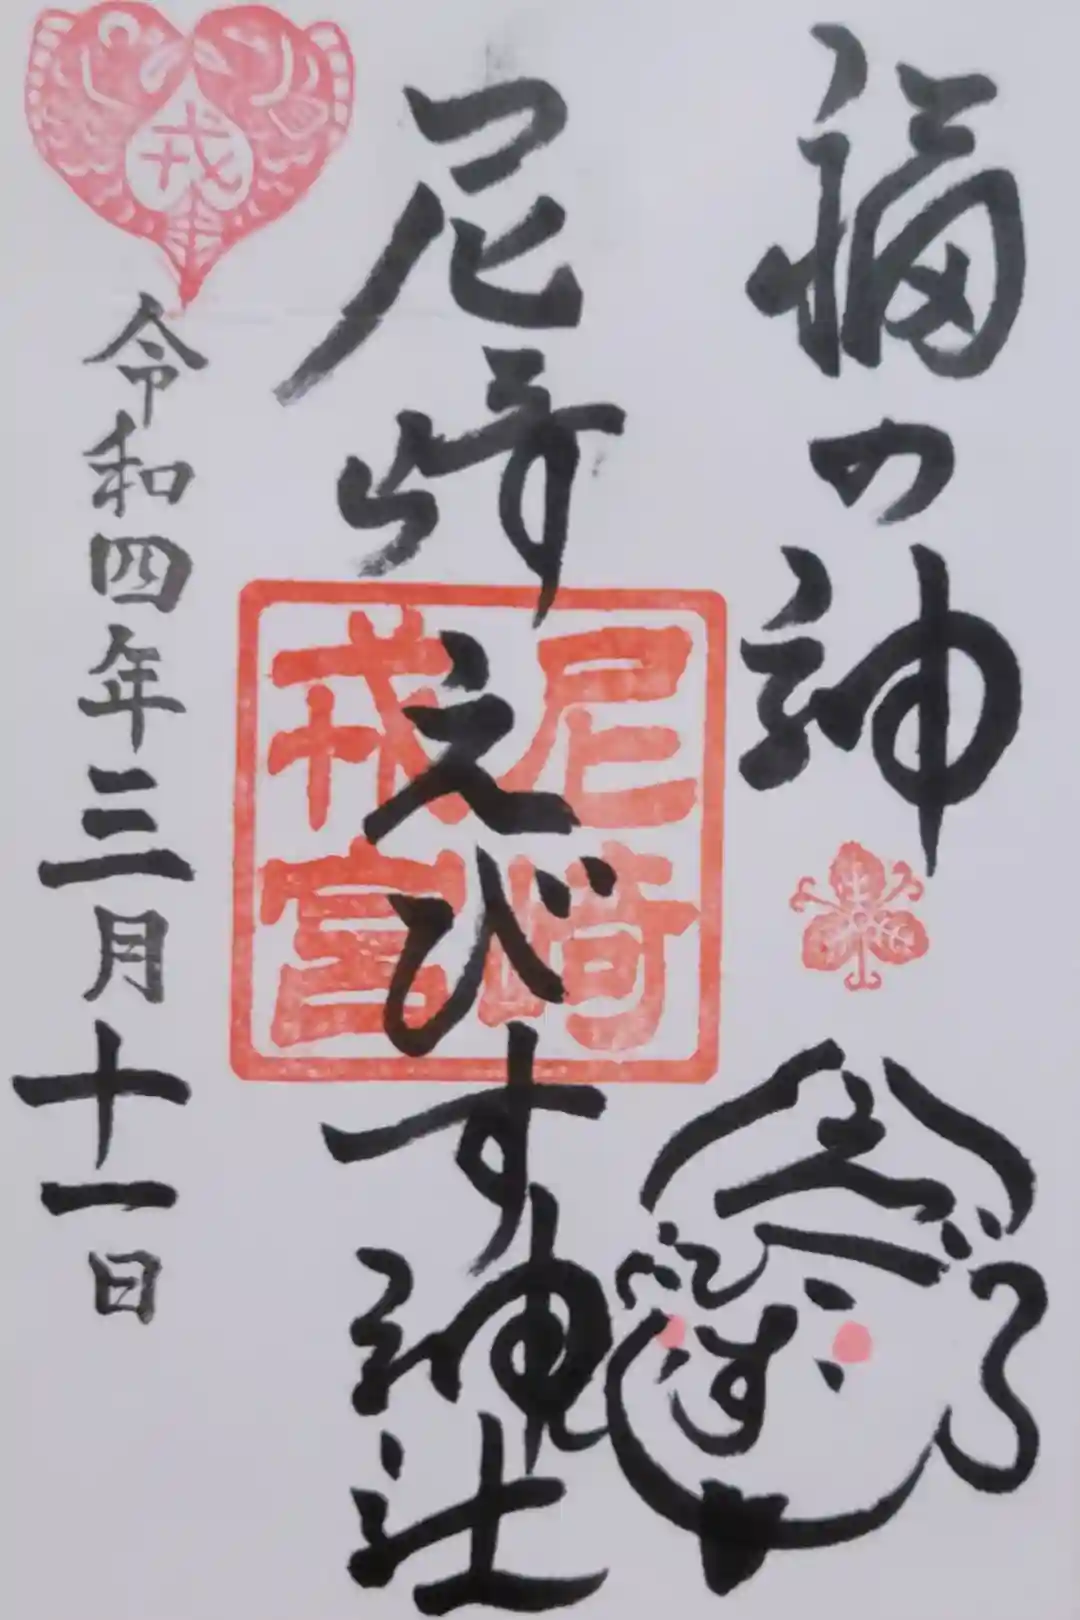 福の神
えびす
尼崎えびす神社
尼崎
戎宮
戎
令和四年三月十一日